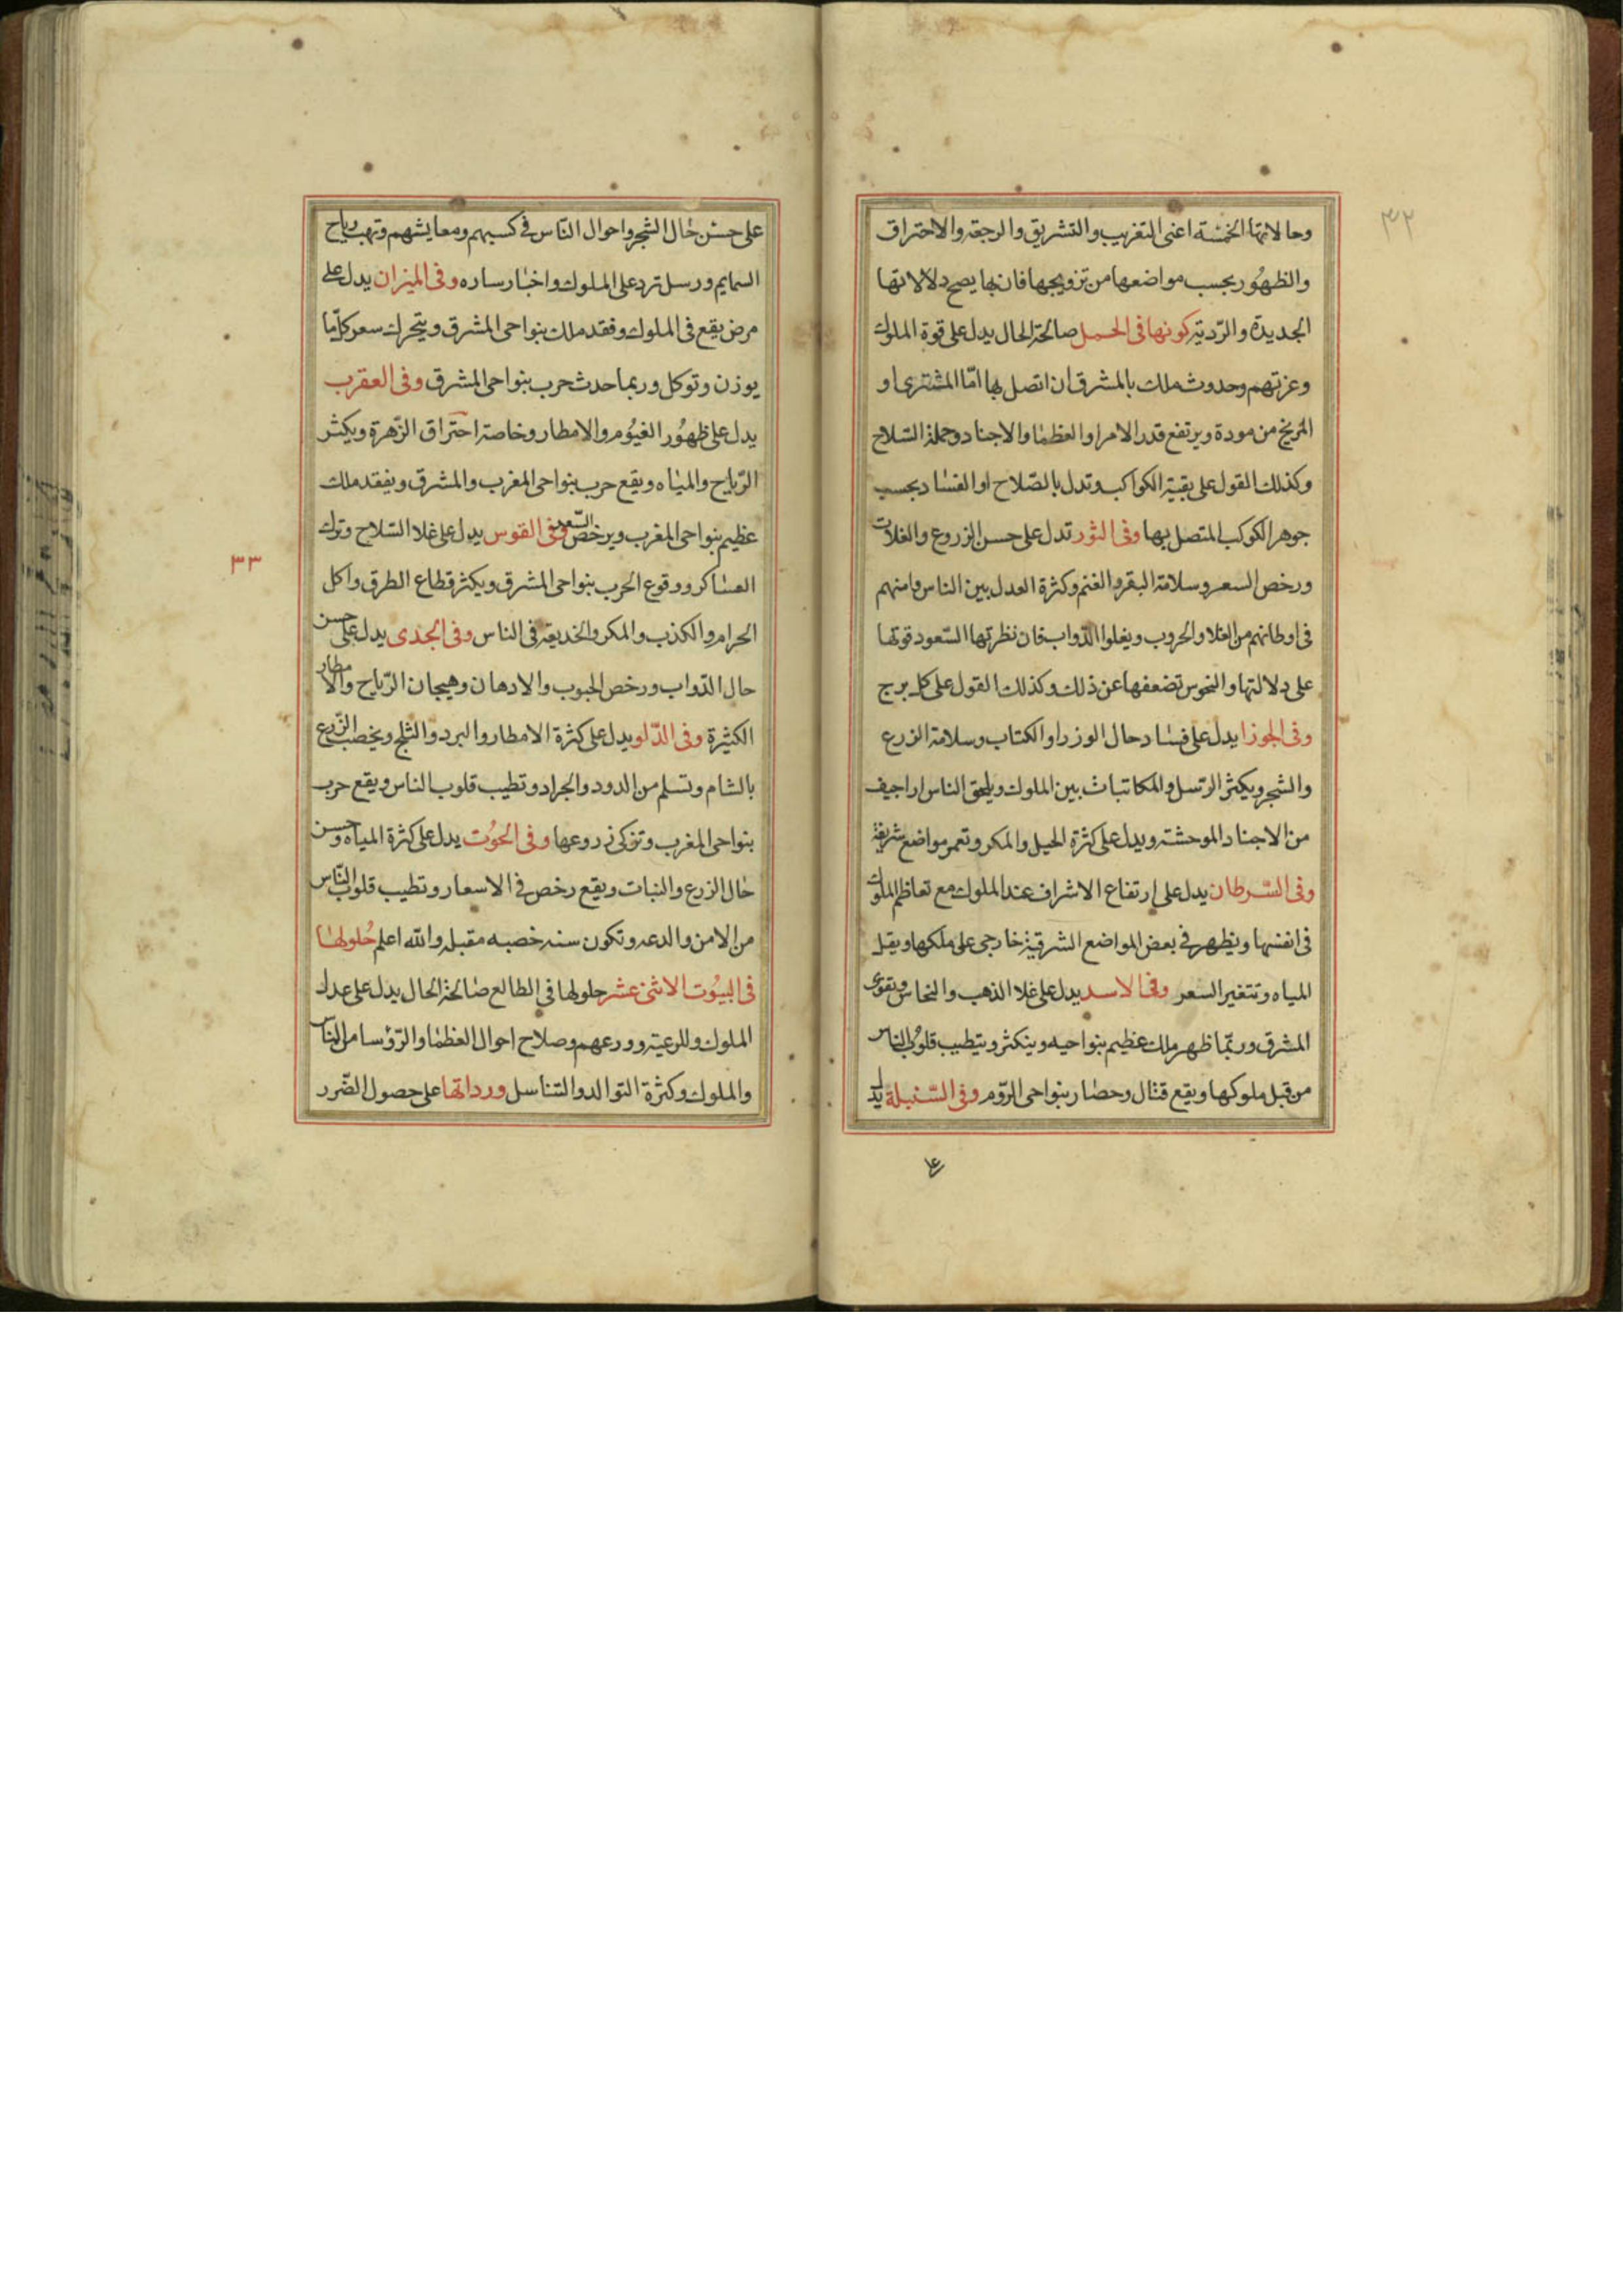 ٣٢
وحالاتها الخمسة اعنى التغريب والتشريق والرجعة والاحتراق
والظهور بحسب مواضعها من تزويجها فان بها يصح دلالاتها
الجديدة والردية كونها فى الحمل صالحة الحال يدل على قوة الملوك
وعزتهم وحدوث ملك بالمشرق ان اتصل بها امّا المشترى او
المريخ من مودة ويرتفع قدر الامرا والعظما والاجناد وحملة السّلاح
وكذلك القول على بقية الكواكب وتدل بالصّلاح او الفساد بحسب
جوهر الكوكب المتصل بها وفى الثور تدل على حسن الزروع والغلات
ورخص السعر وسلامة البقر والغنم وكثرة العدل بين الناس وامنهم
فى اوطانهم من الغلا والحروب ويغلوا الدّواب فان نظرتها السّعود قوتها
على دلالتها والنحوس تضعفها عن ذلك وكذلك القول على كل برج
وفى الجوزا يدل على فساد حال الوزرا والكتاب وسلامة الزرع
والشجر ويكثر الرتسل والمكاتبات بين الملوك ويلحق الناس اراجيف
من الاجناد الموحشة ويدل على كثرة الحيل والمكر وتعمر مواضع شريفة
وفى السّرطان يدل على ارتفاع الاشراف عند الملوك مع تعاظم الملوك
فى انفسها ويظهر فى بعض المواضع الشرقية خارجى على ملكها ويقل
المياه وتتغير السعر وفى الاسد يدل على غلا الذهب والنحاس ويقوى
المشرق وربّما ظهر ملك عظيم بنواحيه وينكثر ويتطيب قلوب الناس
من قبل ملوكها ويقع قتال وحصار بنواحى الرّوم وفى السّنبلة يدل
على
على حسن حال الشجر واحوال النّاس فى كسبهم ومعايشهم وتهب رياح
السمايم ورسل ترد على الملوك واخبار ساره وفى الميزان يدل على
مرض يقع فى الملوك وفقد ملك بنواحى المشرق ويتحرك سعر كلّما
يوزن وتوكل وربما حدث حرب بنواحى المشرق وفى العقرب
يدل على ظهور الغيوم والامطار وخاصة احتراق الزّهرة ويكثر
الرّياح والمياه ويقع حرب بنواحى المغرب والمشرق ويفقد ملك
عظيم بنواحى المغرب ويرخص السّعر وفى القوس يدل على غلا السّلاح وترك
العساكر ووقوع الحرب بنواحى المشرق ويكثر قطاع الطرق واكل
الحرام والكذب والمكر والخديعة فى الناس وفى الجدى يدل على حسن
حال الدّواب ورخص الحبوب والادهان وهيجان الرّياح والامطار
الكثيرة وفى الدّلو يدل على كثرة الامطار والبرد والثلج ويخصب الزّرع
بالشام وتسلم من الدود والجراد وتطيب قلوب الناس ويقع حرب
بنواحى المغرب وتزكى زروعها وفى الحوت يدل على كثرة المياه وحسن
حال الزرع والنبات ويقع رخص فى الاسعار وتطيب قلوب النّاس
من الامن والدعه وتكون سنه خصبه مقبله والله اعلم حُلولها
فى البيُوت الاثنى عشر حلولها فى الطالع صالحة الحال يدل على عدل
الملوك وللرعية وورعهم وصلاح احوال العظما والرّؤسا من الناس
والملوك وكثرة التوالد والتناسل ورداتها على حصول الضّرر
٣٣